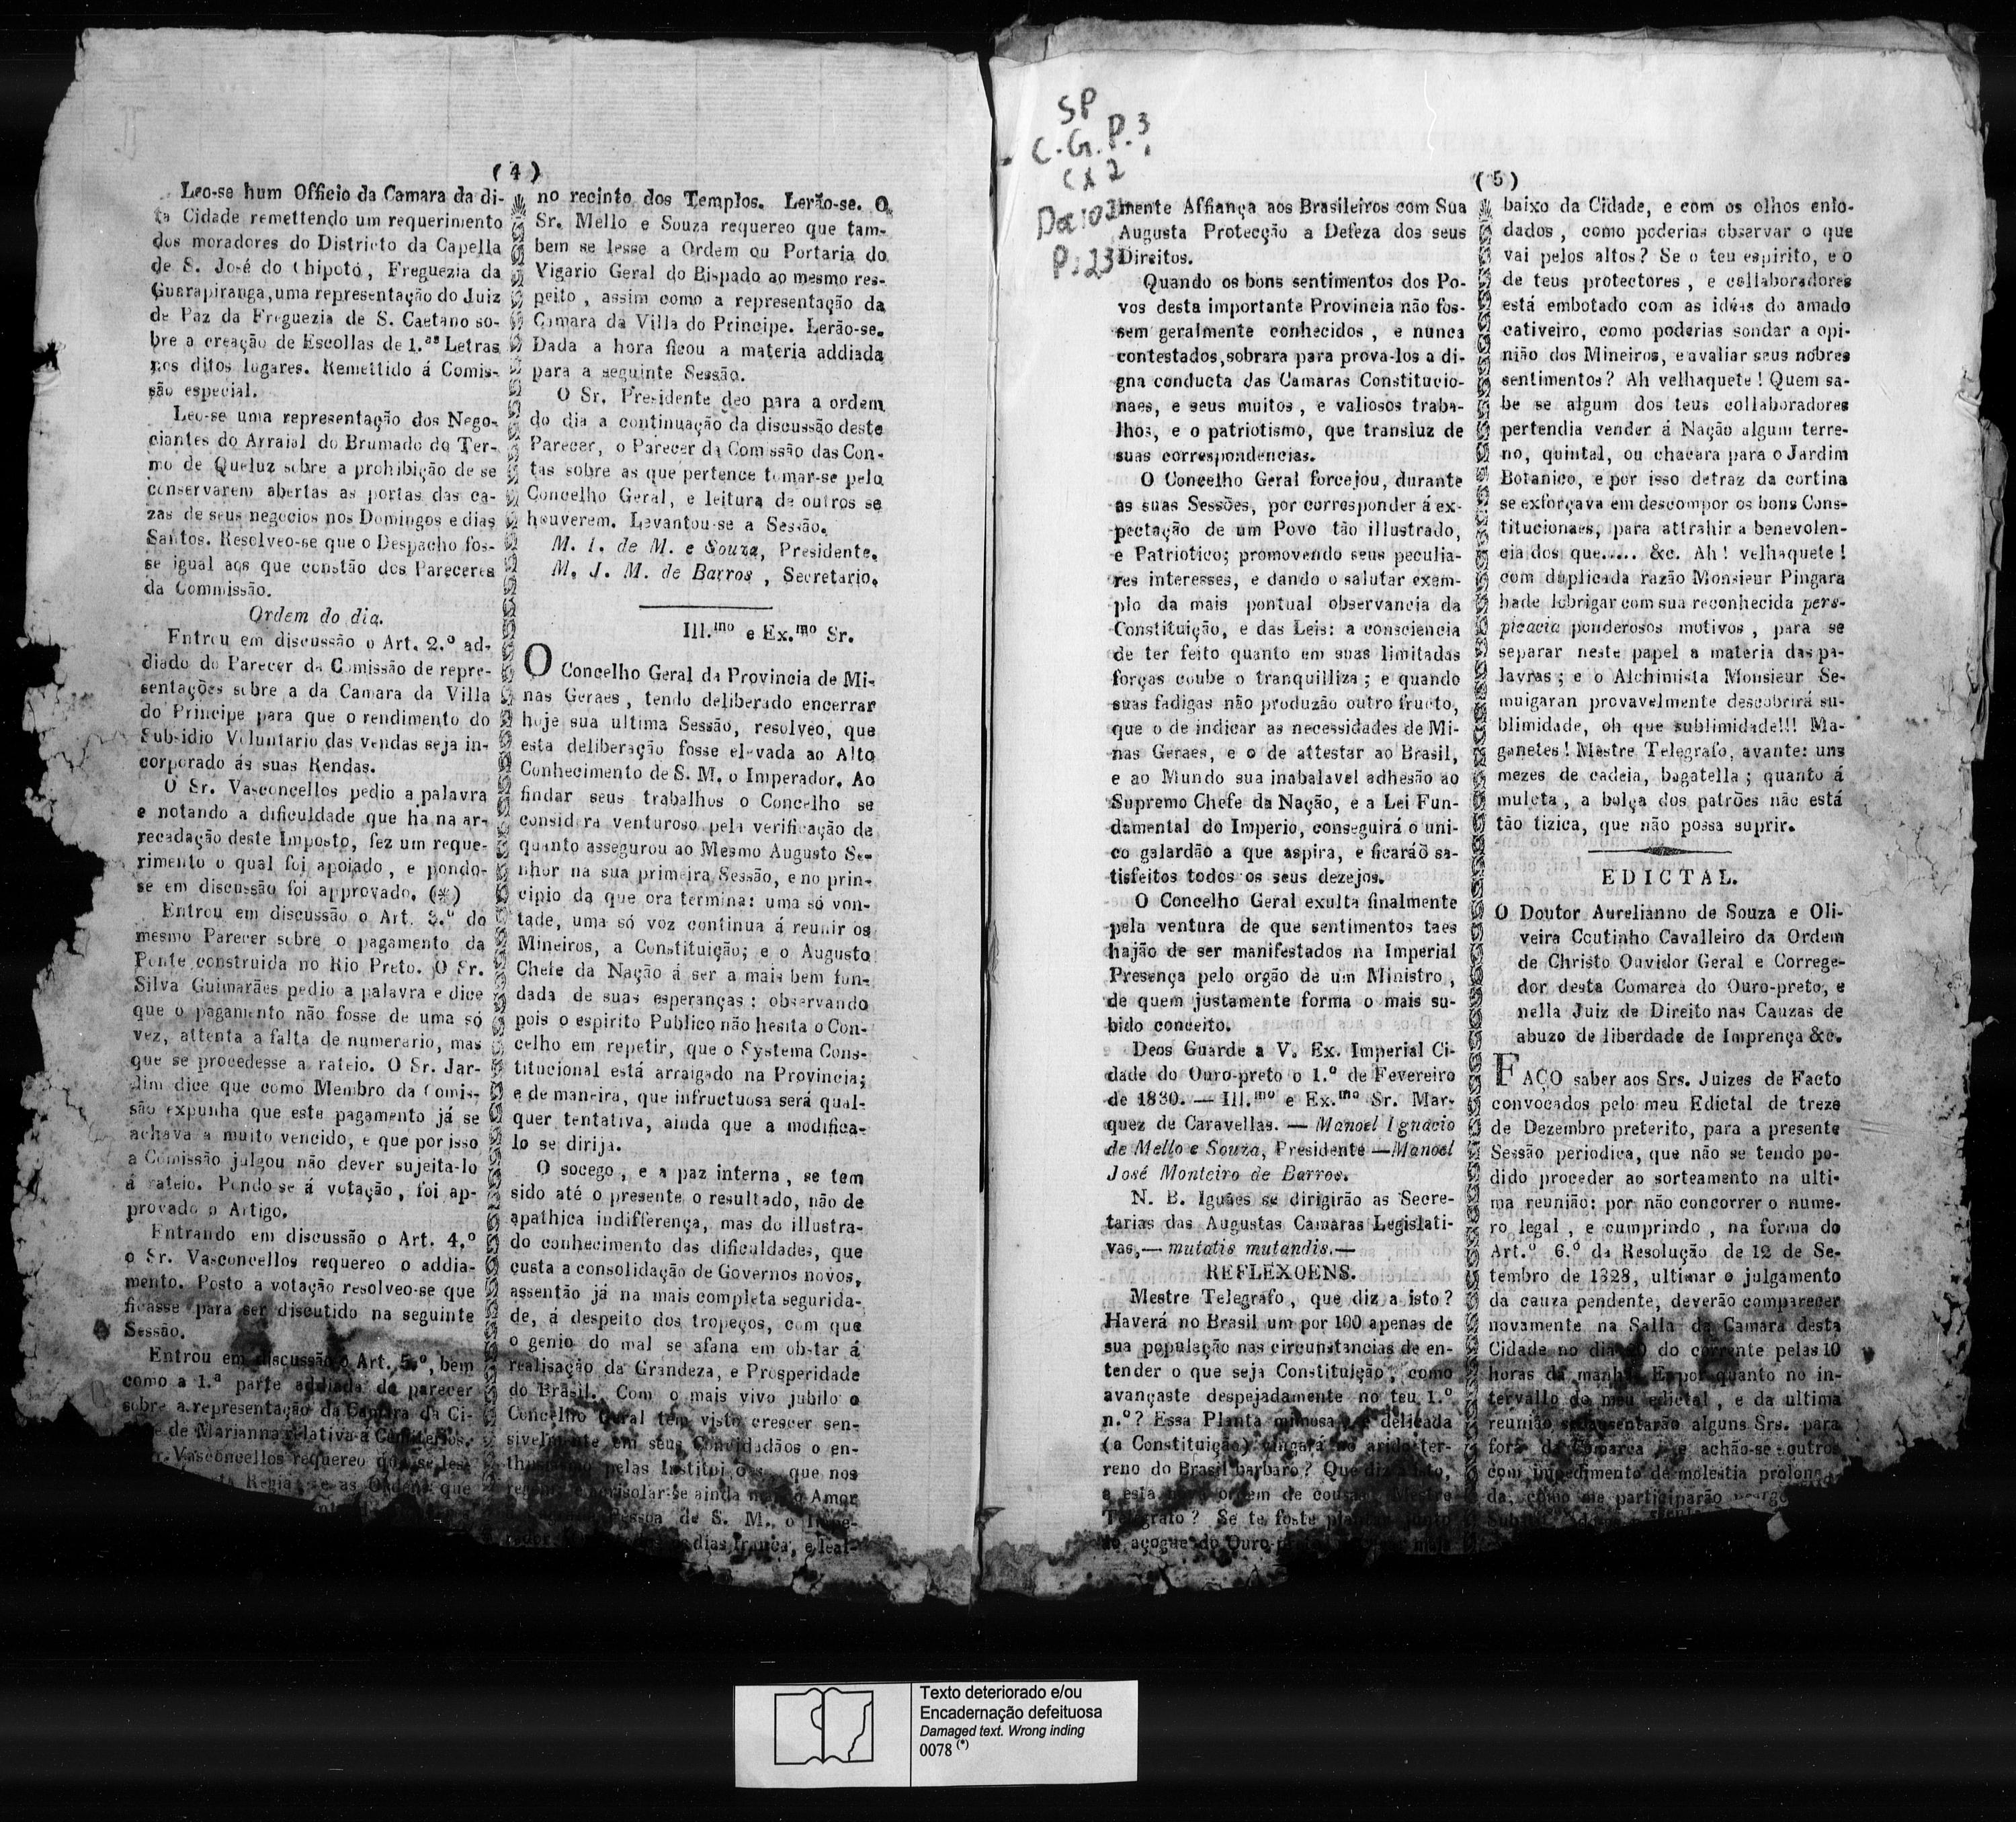 (4)
Leo-se hum Officio da Camara da di-
ta Cidade remettendo um requerimento
dos moradores do Districto da Capella
de S. José do Chipotó, Freguezia da
Guarapiranga, uma representação do Juiz
de Paz da Freguezia de S. Caetano so-
bre a creação de Escollas de 1.as Letras
nos ditos lugares. Remettido á Comis-
são especial.
Leo-se uma representação dos Nego-
ciantes do Arraial do Brumado do Ter-
mo de Queluz sobre a prohibição de se
conservarem abertas as portas das ca-
zas de seus negocios nos Domingos e dias
Santos. Resolveo-se que o Despacho fos-
se igual aos que constão dos Pareceres
da Commissão.
Ordem do dia.
Entrou em discussão o Art. 2.º ad-
diado do Parecer da Comissão de repre-
sentações sobre a da Camara da Villa
do Principe para que o rendimento do
Subsidio Voluntario das vendas seja in-
corporado ás suas Rendas.
O Sr. Vasconcellos pedio a palavra
e notando a dificuldade que ha na ar-
recadação deste Imposto, fez um reque-
rimento o qual foi apoiado, e pondo-
se em discussão foi approvado. (*)
Entrou em discussão o Art. 3.º do
mesmo Parecer sobre o pagamento da
Ponte construida no Rio Preto. O Sr.
Silva Guimarães pedio a palavra e dice
que o pagamento não fosse de uma só
vez, attenta a falta de numerario, mas
que se procedesse a rateio. O Sr. Jar-
dim dice que como Membro da Comis-
são expunha que este pagamento já se
achava a muito vencido, e que por isso
a Comissão julgou não dever sujeita-lo
á rateio. Pondo-se á votação, foi ap-
provado o Artigo.
Entrando em discussão o Art. 4.º
o Sr. Vasconcellos requereo o addia-
mento. Posto a votação resolveo-se que
ficasse para ser discutido na seguinte
Sessão.
Entrou em discussão o Art. 5.º, bem
como a 1.ª parte addiada do parecer
sobre a representação da Camara da Ci-
de Marianna relativa a Cemiterios.
Vasconcellos requereo que se les
as Ordens que
no recinto dos Templos. Lerão-se. O
Sr. Mello e Souza requereo que tam-
bem se lesse a Ordem ou Portaria do
Vigario Geral do Bispado ao mesmo res-
peito, assim como a representação da
Camara da Villa do Principe. Lerão-se.
Dada a hora ficou a materia addiada
para a seguinte Sessão.
O Sr. Presidente deo para a ordem
do dia a continuação da discussão deste
Parecer, o Parecer da Comissão das Con-
tas sobre as que pertence tomar-se pelo
Concelho Geral, e leitura de outros se
houverem. Levantou-se a Sessão.
M. I. de M. e Souza, Presidente.
M. J. M. de Barros, Secretario.
Ill.mo e Ex.mo Sr.
O Concelho Geral da Provincia de Mi-
nas Geraes, tendo deliberado encerrar
hoje sua ultima Sessão, resolveo, que
esta deliberação fosse elevada ao Alto
Conhecimento de S. M. o Imperador. Ao
findar seus trabalhos o Concelho se
considera venturoso pela verificação de
quanto assegurou ao Mesmo Augusto Se-
nhor na sua primeira Sessão, e no prin-
cipio da que ora termina: uma só von-
tade, uma só voz continua á reunir os
Mineiros, a Constituição; e o Augusto
Chefe da Nação á ser a mais bem fun-
dada de suas esperanças: observando
pois o espirito Publico não hesita o Con-
celho em repetir, que o Systema Cons-
titucional está arraigado na Provincia;
e de maneira, que infructuosa será qual-
quer tentativa, ainda que a modifica-
lo se dirija.
O socego, e a paz interna, se tem
sido até o presente o resultado, não de
apathica indifferença, mas do illustra-
do conhecimento das dificuldades, que
custa a consolidação de Governos novos,
assentão já na mais completa segurida-
de, á despeito dos tropeços, com que
o genio do mal se afana em obstar á
realisação da Grandeza, e Prosperidade
do Brasil. Com o mais vivo jubilo o
Concelho Geral tem visto crescer sen-
sivelmente em seus Concidadãos o en-
thusiasmo pelas Instituições, que nos
regem, e acrisolar-se ainda mais o Amor
Pessoa de S. M. o Impe-
dias franca, e leal-
SP
C.G.P.3
CX 2
Doc:03
P:23
(5)
mente Affiança aos Brasileiros com Sua
Augusta Protecção a Defeza dos seus
Direitos.
Quando os bons sentimentos dos Po-
vos desta importante Provincia não fos-
sem geralmente conhecidos, e nunca
contestados, sobrara para prova-los a di-
gna conducta das Camaras Constitucio-
naes, e seus muitos, e valiosos traba-
lhos, e o patriotismo, que transluz de
suas correspondencias.
O Concelho Geral forcejou, durante
as suas Sessões, por corresponder á ex-
pectação de um Povo tão illustrado,
e Patriotico; promovendo seus peculia-
res interesses, e dando o salutar exem-
plo da mais pontual observancia da
Constituição, e das Leis: a consciencia
de ter feito quanto em suas limitadas
forças coube o tranquilliza; e quando
suas fadigas não produzão outro fructo,
que o de indicar as necessidades de Mi-
nas Geraes, e o de attestar ao Brasil,
e ao Mundo sua inabalavel adhesão ao
Supremo Chefe da Nação, e a Lei Fun-
damental do Imperio, conseguirá o uni-
co galardão a que aspira, e ficaráõ sa-
tisfeitos todos os seus dezejos.
O Concelho Geral exulta finalmente
pela ventura de que sentimentos taes
hajão de ser manifestados na Imperial
Presença pelo orgão de um Ministro,
de quem justamente forma o mais su-
bido conceito.
Deos Guarde a V. Ex. Imperial Ci-
dade do Ouro-preto o 1.º de Fevereiro
de 1830. — Ill.mo e Ex.mo Sr. Mar-
quez de Caravellas. — Manoel Ignacio
de Mello e Souza, Presidente — Manoel
José Monteiro de Barros.
N. B. Iguaes se dirigirão as Secre-
tarias das Augustas Camaras Legislati-
vas, — mutatis mutandis. —
REFLEXOENS.
Mestre Telegrafo, que diz a isto?
Haverá no Brasil um por 100 apenas de
sua população nas circunstancias de en-
tender o que seja Constituição, como
avançaste despejadamente no teu 1.º
n.º? Essa Planta mimosa, e delicada
(a Constituição) vingará no arido ter-
reno do Brasil barbaro? Que diz a isto,
a esta nova ordem de cousas Mestre
Telegrafo? Se te foste plantar junto
ao açogue do Ouro-preto mais
baixo da Cidade, e com os olhos enlo-
dados, como poderias observar o que
vai pelos altos? Se o teu espirito, e o
de teus protectores, e collaboradores
está embotado com as idéas do amado
cativeiro, como poderias sondar a opi-
nião dos Mineiros, e avaliar seus nobres
sentimentos? Ah velhaquete! Quem sa-
be se algum dos teus collaboradores
pertendia vender á Nação algum terre-
no, quintal, ou chacara para o Jardim
Botanico, e por isso detraz da cortina
se exforçava em descompor os bons Cons-
titucionaes, para attrahir a benevolen-
cia dos que..... &c. Ah! velhaquete!
com duplicada razão Monsieur Pingara
hade lobrigar com sua reconhecida pers-
picacia ponderosos motivos, para se
separar neste papel a materia das pa-
lavras; e o Alchimista Monsieur Se-
muigaran provavelmente descobrirá su-
blimidade, oh que sublimidade!!! Ma-
ganetes! Mestre Telegrafo, avante: uns
mezes de cadeia, bagatella; quanto á
muleta, a bolça dos patrões não está
tão tizica, que não possa suprir.
EDICTAL.
O Doutor Aurelianno de Souza e Oli-
veira Coutinho Cavalleiro da Ordem
de Christo Ouvidor Geral e Correge-
dor desta Comarca do Ouro-preto, e
nella Juiz de Direito nas Cauzas de
abuzo de liberdade de Imprença &c.
FAÇO saber aos Srs. Juizes de Facto
convocados pelo meu Edictal de treze
de Dezembro preterito, para a presente
Sessão periodica, que não se tendo po-
dido proceder ao sorteamento na ulti-
ma reunião: por não concorrer o nume-
ro legal, e cumprindo, na forma do
Art.º 6.º da Resolução de 12 de Se-
tembro de 1828, ultimar o julgamento
da cauza pendente, deverão comparecer
novamente na Salla da Camara desta
Cidade no dia do corrente pelas 10
horas da manhã. E por quanto no in-
tervallo do meu edictal, e da ultima
reunião se ausentarão alguns Srs. para
fora da Comarca, e achão-se outros
com impedimento de molestia prolonga-
da, como me participarão
Texto deteriorado e/ou
Encadernação defeituosa
Damaged text. Wrong inding
0078 (*)